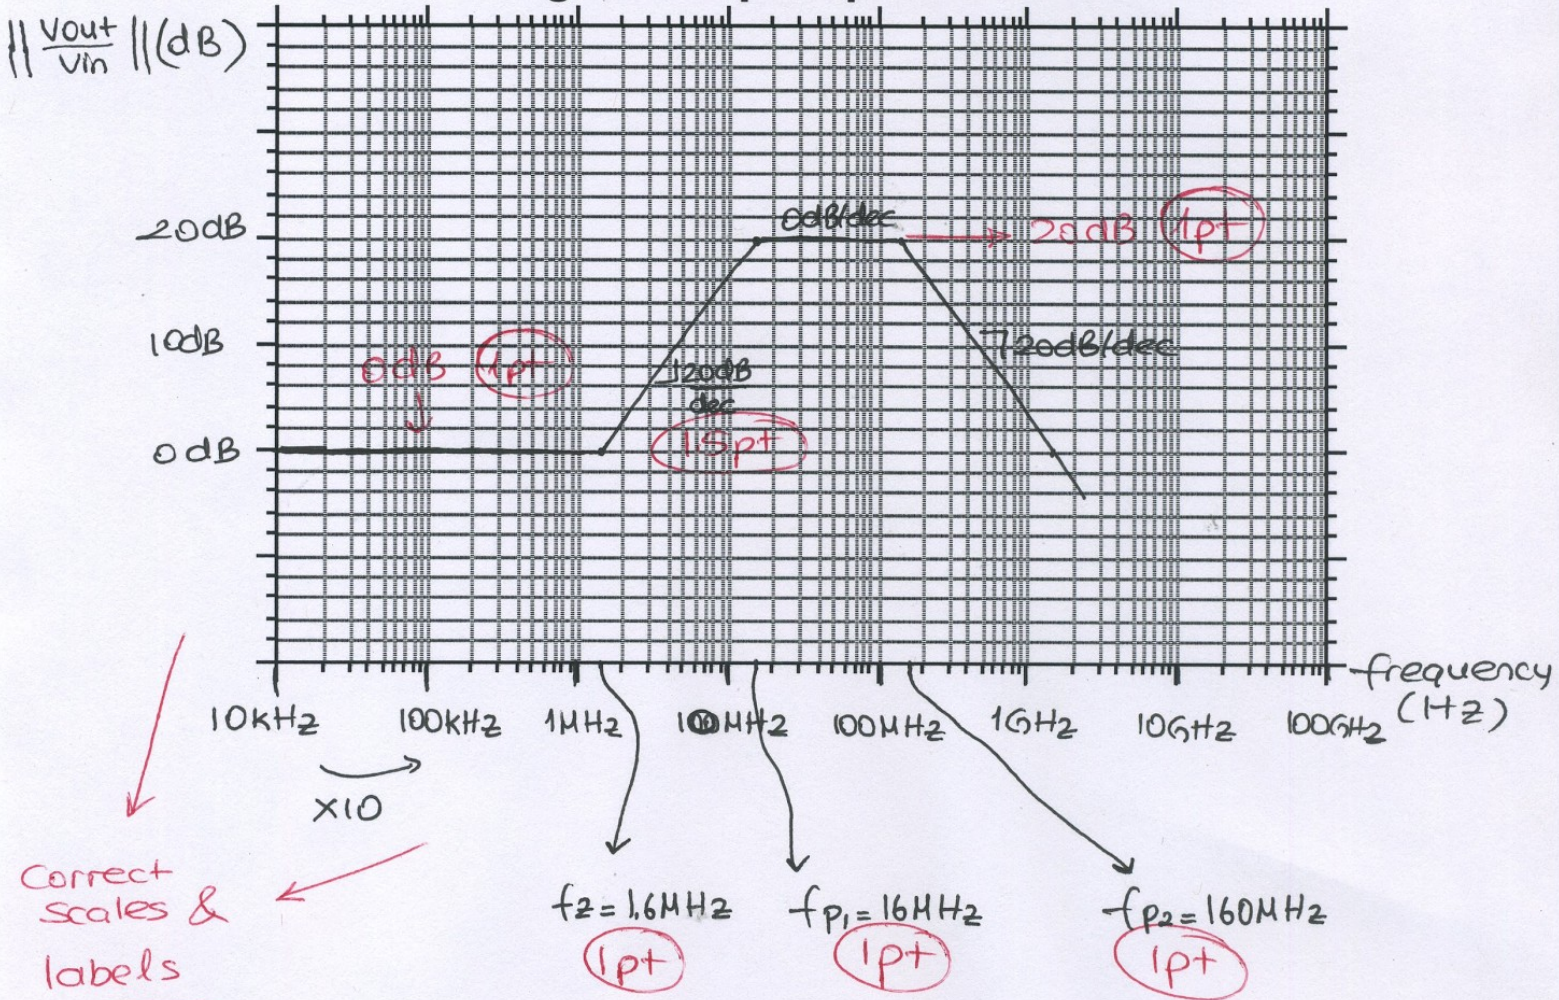 || Vout / Vin || (dB)
20dB
10dB
0dB
0dB/dec
20dB
1pt
20dB/dec
0dB
1pt
20dB
dec
1.5pt
frequency
(Hz)
10kHz
100kHz
1MHz
100MHz
1GHz
10GHz
100GHz
x10
Correct
scales &
labels
fz = 1.6MHz
fp1 = 16MHz
fp2 = 160MHz
1pt
1pt
1pt